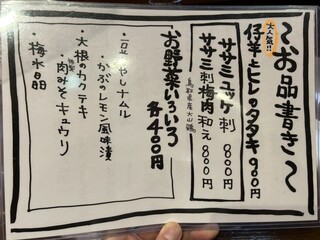 ～お品書き～
大人気!!
仔羊とヒレのタタキ 900円
ササミユッケ 800円
ササミ刺 800円
ササミ刺梅肉和え 800円
鳥取県産大山鶏
お野菜いろいろ
各400円
・豆もやしナムル
・かぶのレモン風味漬
・大根のカクテキ
・肉みそキュウリ
・梅水晶